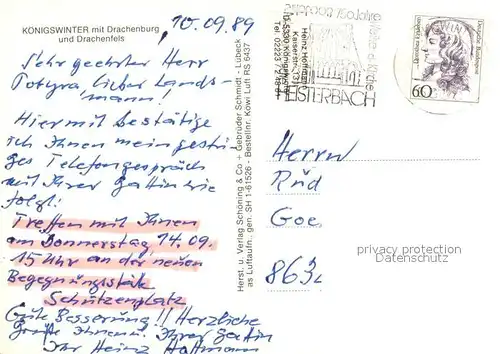 KÖNIGSWINTER mit Drachenburg
und Drachenfels
10.09.89
Sehr geehrter Herr
Potyra, lieber Lands-
mann!
Hiermit bestätige
ich Ihnen mein gestri-
ges Telefongespräch
mit Ihrer Gattin wie
folgt:
Treffen mit Ihnen
am Donnerstag, 14.09.
15 Uhr an der neuen
Begegnungsstätte
Schützenplatz
Gute Besserung!! Herzliche
Grüße Ihnen u. Ihrer Gattin
Ihr Heinz Hoffmann
Herst. u. Verlag Schöning & Co + Gebrüder Schmidt, Lübeck
as Luftaufn. gen. SH 1-61526 - Bestellnr. Köwi Luft RS 6437
Heinz Hoffmann
Kaiserstr.
D-5330 Königswinter
Tel. 02223
750 Jahre
HEISTERBACH
Deutsche Bundespost
60
Herrn
Rüd
Goe
363
privacy protection
Datenschutz